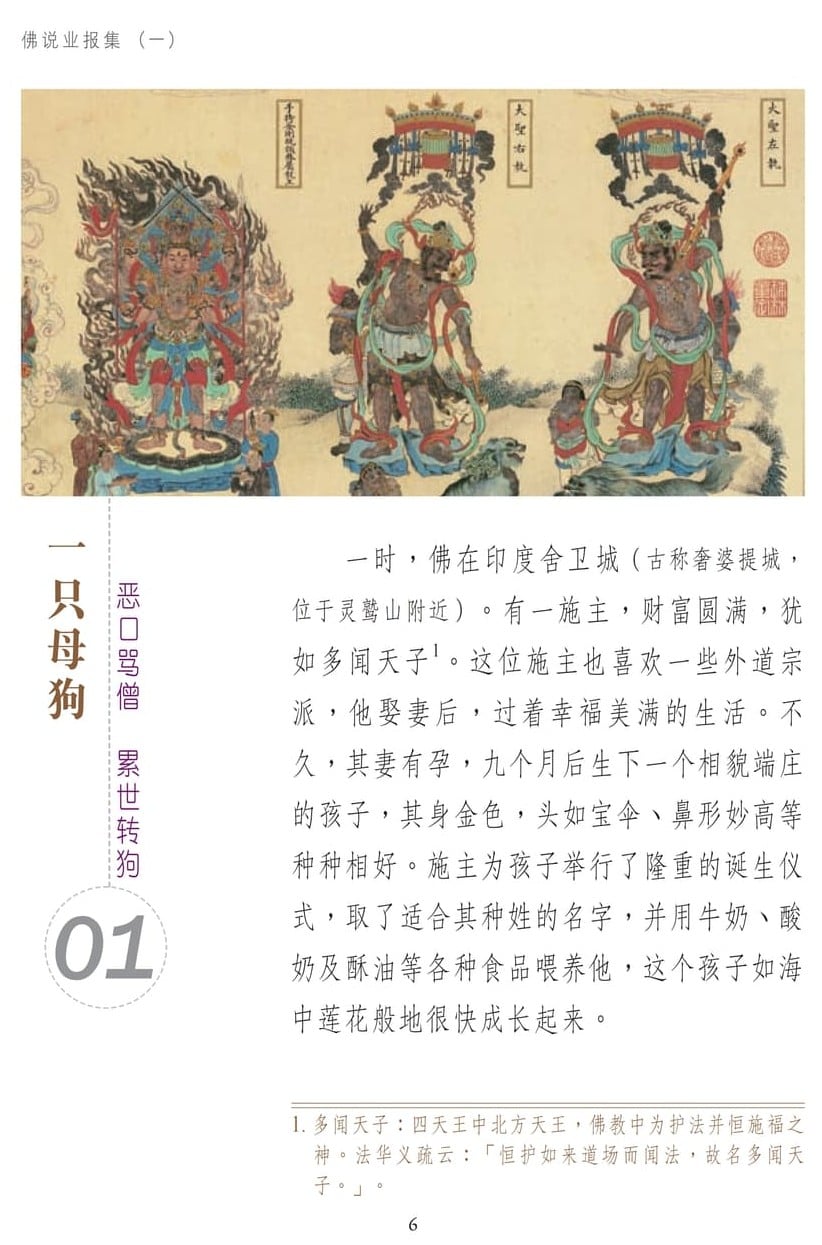 佛说业报集 （一）
大聖右執
大聖左執
一只母狗
恶口骂僧　累世转狗
01
一时，佛在印度舍卫城（古称奢婆提城，
位于灵鹫山附近）。有一施主，财富圆满，犹
如多闻天子1。这位施主也喜欢一些外道宗
派，他娶妻后，过着幸福美满的生活。不
久，其妻有孕，九个月后生下一个相貌端庄
的孩子，其身金色，头如宝伞、鼻形妙高等
种种相好。施主为孩子举行了隆重的诞生仪
式，取了适合其种姓的名字，并用牛奶、酸
奶及酥油等各种食品喂养他，这个孩子如海
中莲花般地很快成长起来。
1. 多闻天子：四天王中北方天王，佛教中为护法并恒施福之
神。法华义疏云：「恒护如来道场而闻法，故名多闻天
子。」。
6